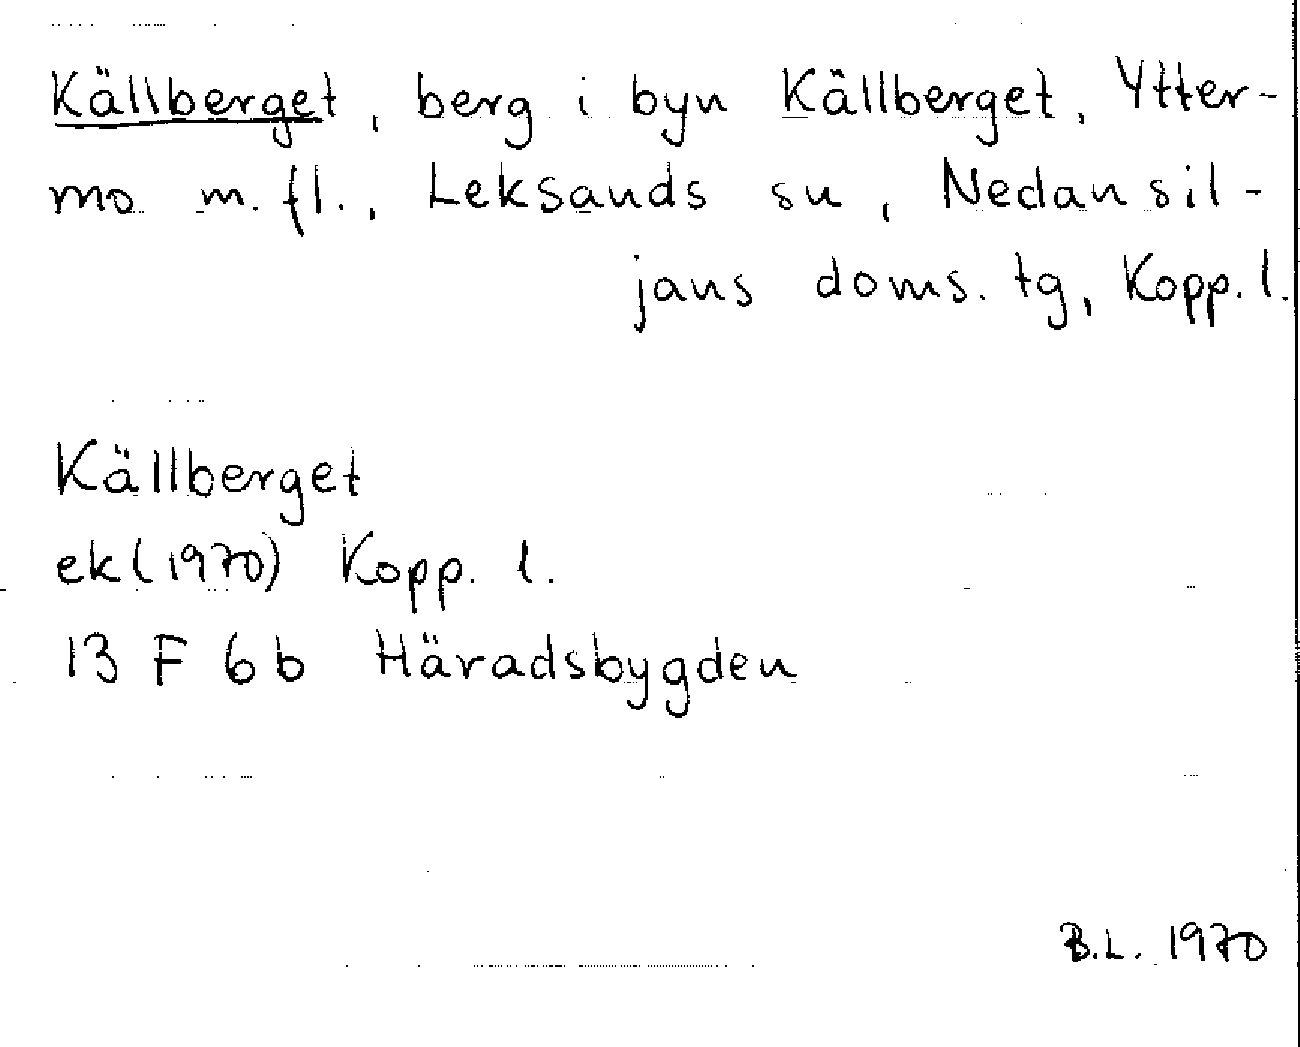 Källberget, berg i byn Källberget, Ytter-
mo m.fl., Leksands sn, Nedansil-
jans doms. tg, Kopp. l.
Källberget
ek (1970) Kopp. l.
13 F 6 b Häradsbygden
B.L. 1970